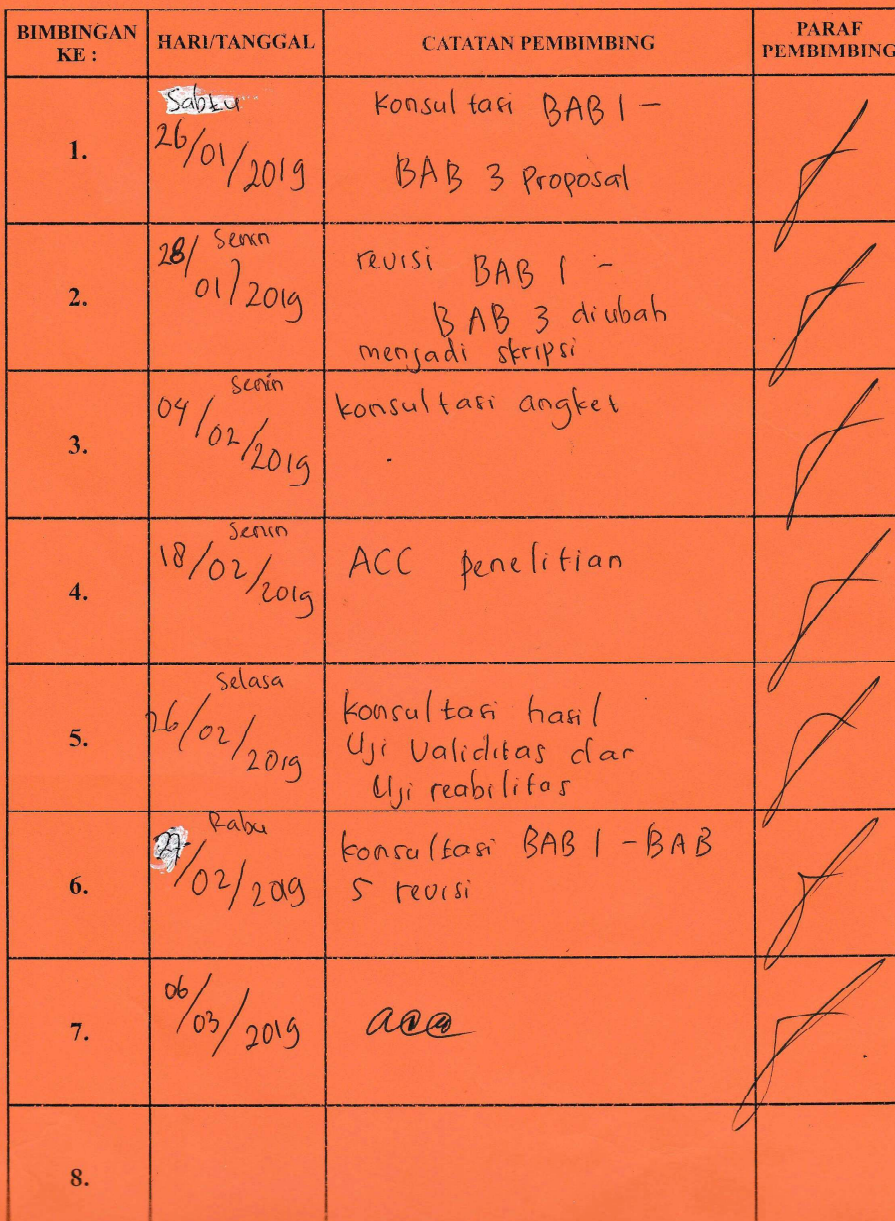 BIMBINGAN KE : HARI/TANGGAL CATATAN PEMBIMBING PARAF PEMBIMBING
1.
Sabtu
26/01/2019
konsultasi BAB 1 -
BAB 3 Proposal
2.
Senin
28/01/2019
revisi BAB 1 -
BAB 3 diubah
menjadi skripsi
3.
Senin
04/02/2019
konsultasi angket
4.
Senin
18/02/2019
ACC penelitian
5.
Selasa
26/02/2019
konsultasi hasil
Uji Validitas dan
Uji reabilitas
6.
Rabu
27/02/2019
konsultasi BAB 1 - BAB
5 revisi
7.
06/03/2019
acc
8.